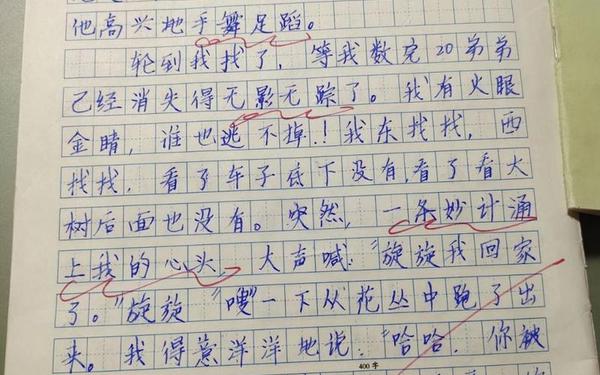 他高兴地手舞足蹈。
轮到我找了，等我数完20弟弟
己经消失得无影无踪了。我有火眼
金睛，谁也逃不掉！我东找找，西
找找，看了车子底下没有，看了看大
树后面也没有。突然，一条妙计涌
上我的心头，大声喊："旋旋我回家
了。"旋旋"嗖"一下从花丛中跑了出
来。我得意洋洋地说："哈哈，你被
400字